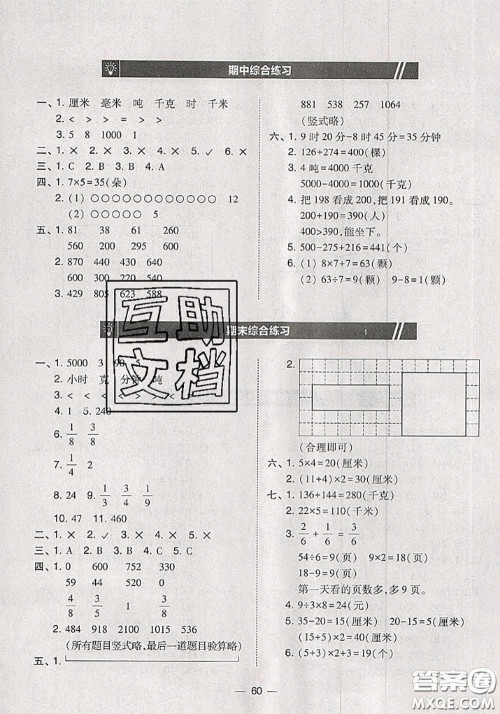 期中综合练习
一、1. 厘米 毫米 吨 千克 时 千米
2. < > > = > <
3. 5 8 1000 1
二、1. × 2. × 3. × 4. × 5. ✓ 6. ×
三、1. C 2. B 3. B 4. A
四、1. 7×5=35(朵)
2. (1) ○○○○○○○○○○○○ 12
五、1. 81 38 61 260
560 200 295 600
2. 870 440 430
600 300 220 540
3. 429 805 623 588
881 538 257 1064
(竖式略)
六、1. 9 时 20 分-8 时 45 分=35 分钟
2. 126+274=400(棵)
3. 4 吨=4000 千克
5000-4000=1000(千克)
4. 把 198 看成 200,把 191 看成 190。
200+190=390(人)
400>390,能坐下。
5. 500-275+216=441(个)
6. (1) 8×7+7=63(颗)
(2) 63÷7=9(颗) 9-8=1(颗)
互助
文档
期末综合练习
1
一、1. 5000 3 90 5
2. 小时 克 分钟 吨
4. 1 5. 240
6. 1/8 3/8
7. 1/4 2
8. 24 9. 1/4 1/3 1/9
10. 47 11. 460
二、1. × 2. × 3. × 4. ✓ 5. ×
三、1. A 2. B 3. C 4. B
四、1. 0 600 752 330
59 44 520 0
4/8 3/8 3/5 1
2. 484 918 2100 50
(所有题目竖式略,最后一道题目验算略)
五、1.
2.
(合理即可)
六、1. 5×4=20(厘米)
2. (11+4)×2=30(厘米)
七、1. 136+144=280(千克)
2. 22×5=110(千米)
3. 2/6 > 1/6
54÷6=9(页) 9×2=18(页)
18-9=9(页)
第一天看的页数多,多 9 页。
4. 9÷3×8=24(元)
5. 35-20=15(厘米) 20-15=5(厘米)
(15+5)×2=40(厘米)
6. (4+5)×2=18(分米)
60
答案圈
MXQE.COM